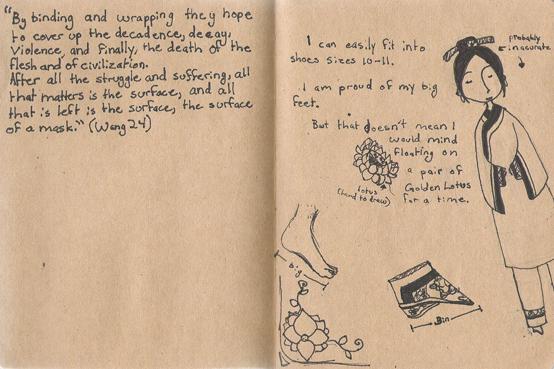 "By binding and wrapping they hope
to cover up the decadence, decay,
violence, and finally, the death of the
flesh and of civilization.
After all the struggle and suffering, all
that matters is the surface, and all
that is left is the surface, the surface
of a mask." (Wang 24)
I can easily fit into
shoes sizes 10-11.
probably
inacurate
I am proud of my big
feet.
But that doesn't mean I
would mind
floating on
a pair of
Golden Lotus
for a time.
lotus
(hard to draw)
big